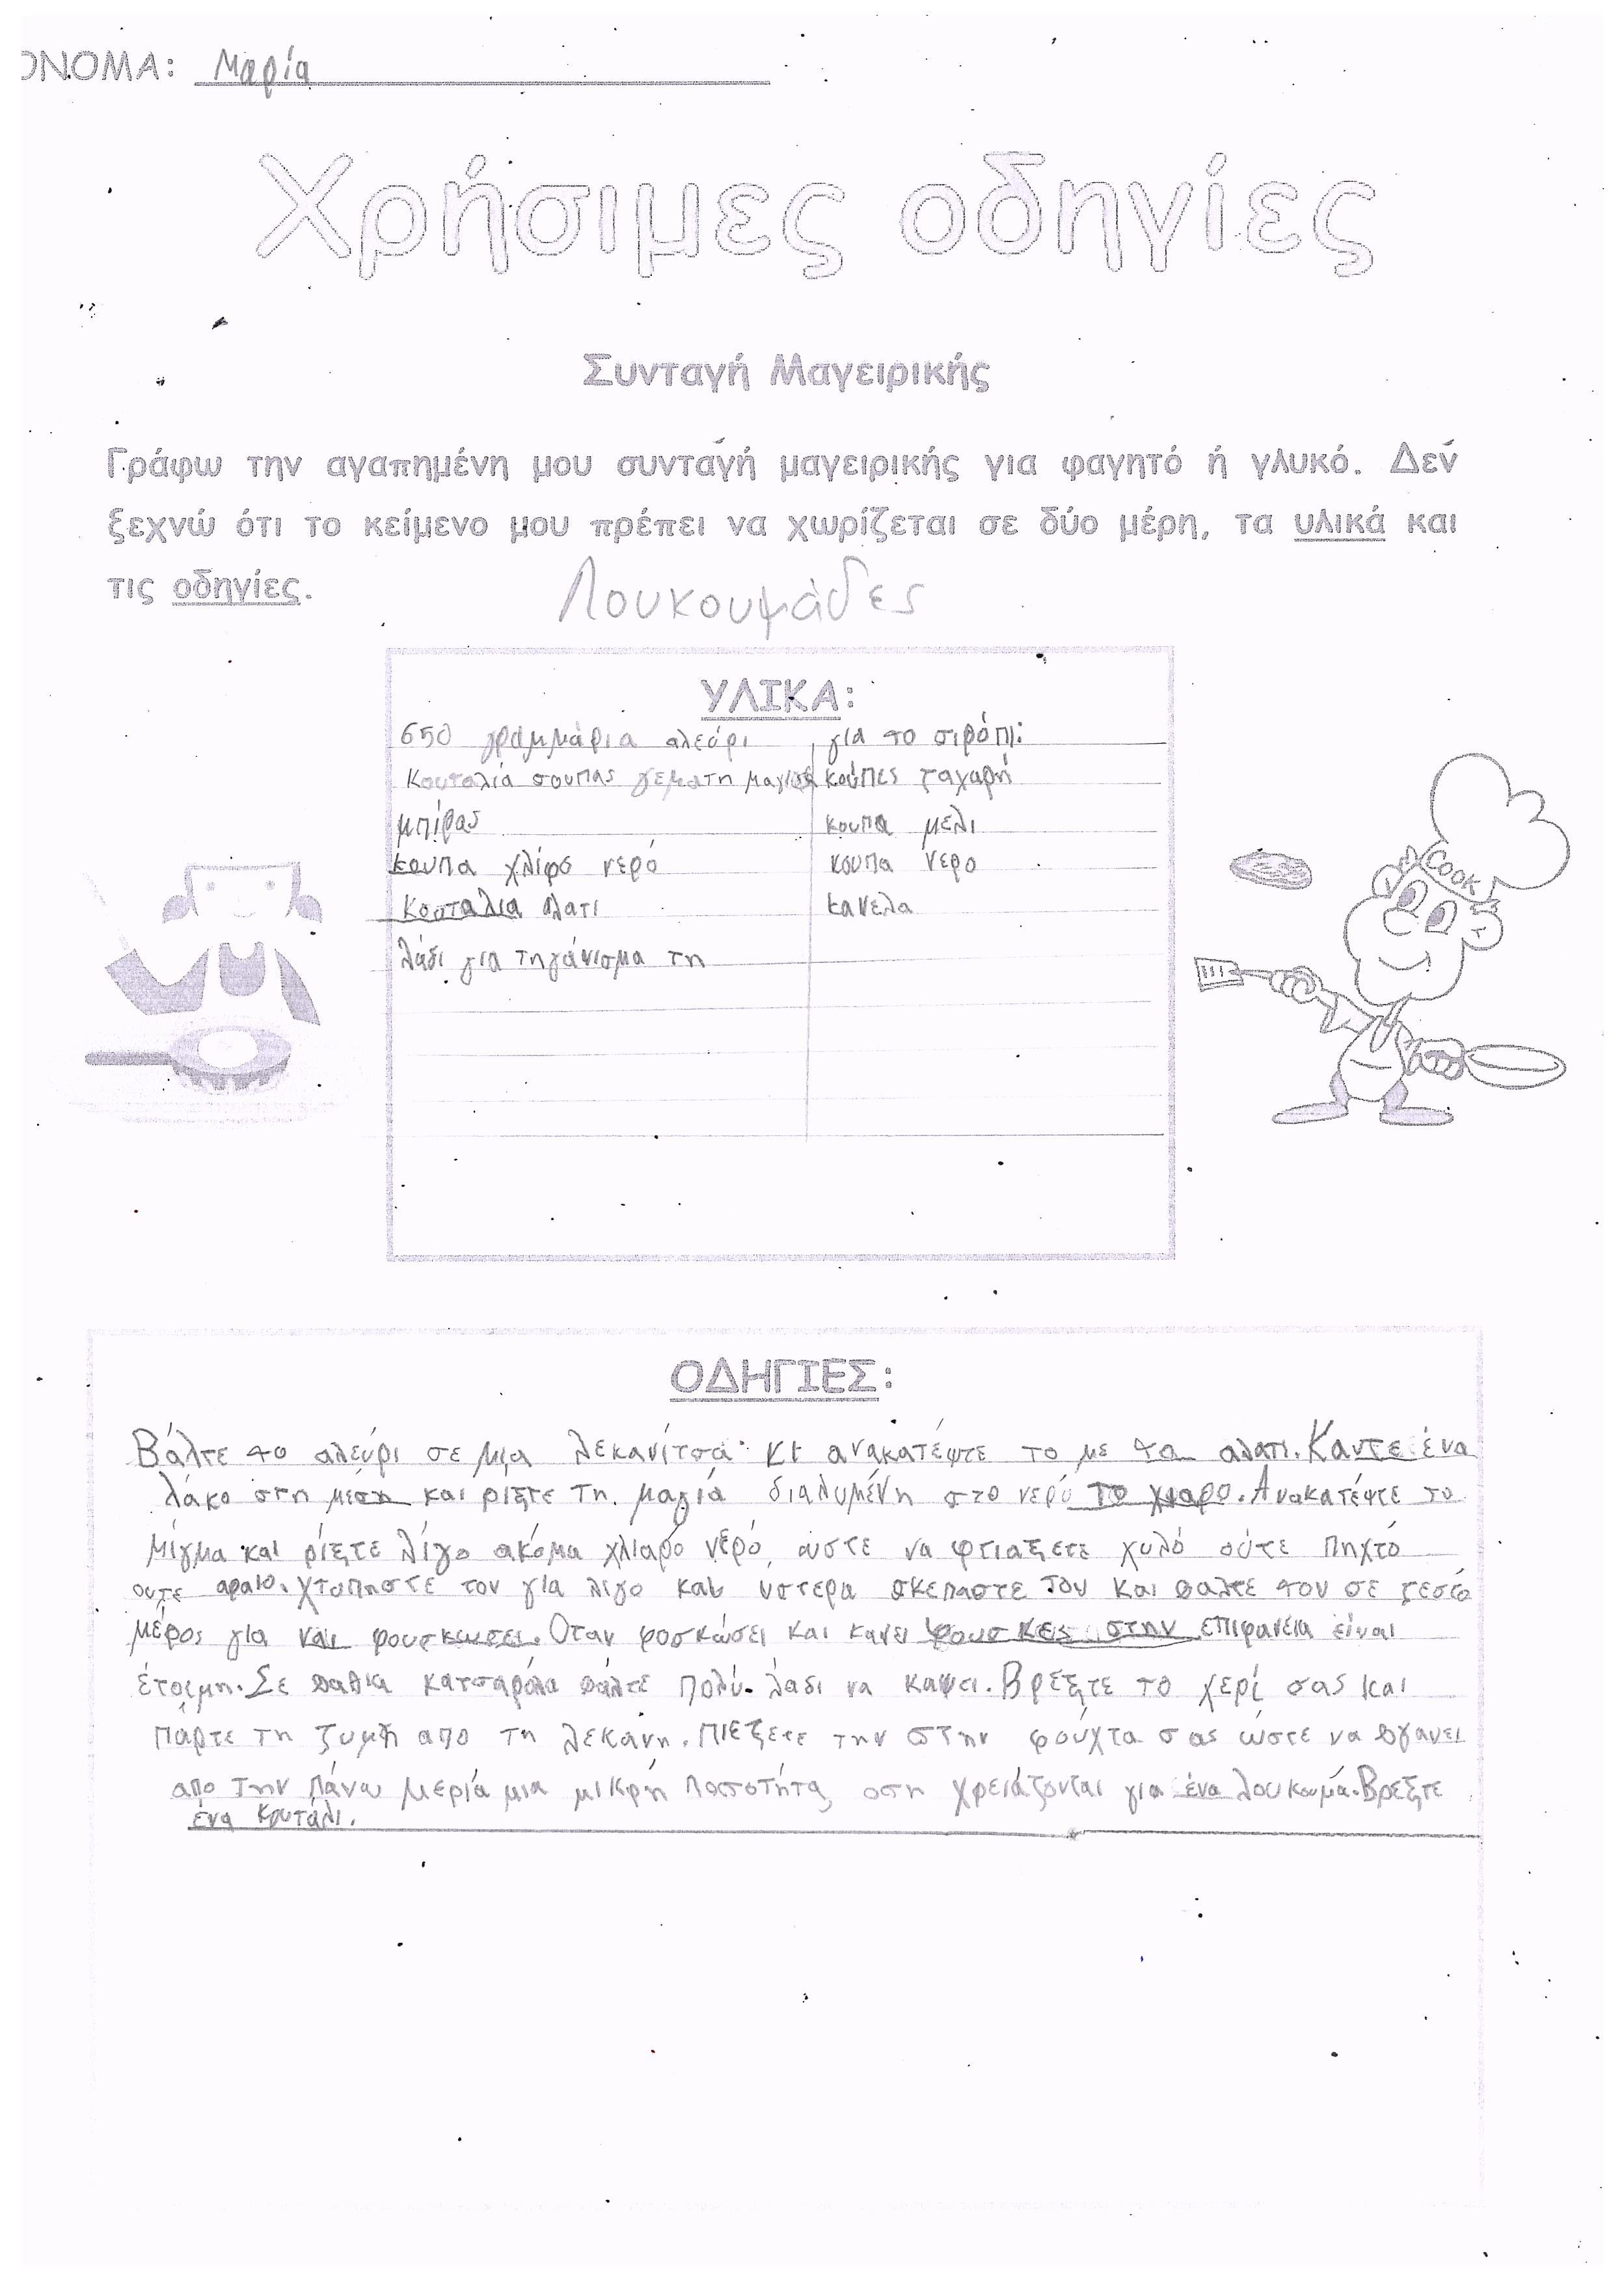 ΟΝΟΜΑ: Μαρία
Χρήσιμες οδηγίες
Συνταγή Μαγειρικής
Γράφω την αγαπημένη μου συνταγή μαγειρικής για φαγητό ή γλυκό. Δεν
ξεχνώ ότι το κείμενο μου πρέπει να χωρίζεται σε δύο μέρη, τα υλικά και
τις οδηγίες.
Λουκουμάδες
ΥΛΙΚΑ:
650 γραμμάρια αλεύρι
Κουταλία σουπας γεματη μαγιας
μπίρας
κουπα χλίρο νερό
Κουταλια αλατι
λάδι για τηγάνισμα τη
για το σιρόπι:
κούπες ζαχαρή
κουπα μελι
κουπα νερο
κανελα
COOK
ΟΔΗΓΙΕΣ:
Βάλτε το αλεύρι σε μια λεκανίτσα κι ανακατέψτε το με το αλατι. Καντε ένα
λάκο στη μέση και ρίξτε τη μαγιά διαλυμένη στο νερό το χιαρο. Ανακατέψτε το
μίγμα και ρίξτε λίγο ακόμα χλιαρό νερό, ώστε να φτιαξετε χυλό ούτε πηχτό
ουτε αραιο. χτυπηστε τον για λιγο και υστερα σκεπαστε τον και βαλτε τον σε ζεστο
μέρος για να φουσκωσει. Οταν φοσκώσει και κανει φουσκες στην επιφανεία είναι
έτοιμη. Σε βαθια κατσαρόλα βάλτε πολύ λαδι να καψει. Βρέξτε το χερί σας και
πάρτε τη ζυμη απο τη λεκανη. Πιεξετε την στην φούχτα σας ώστε να βγανει
απο την πάνω μεριά μια μικρή ποσοτήτα, οση χρειάζονται για ένα λουκουμά. Βρεξτε
ένα κουτάλι.